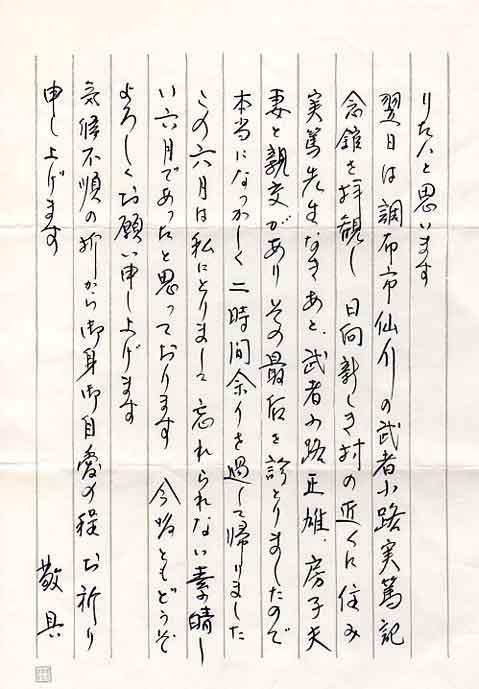 りたいと思います
翌日は調布市仙川の武者小路実篤記
念館を拝観し 日向新しき村の近くに住み
実篤先生なきあと、武者小路正雄、房子夫
妻と親交があり その最后を診とりましたので
本当になつかしく 二時間余りを過して帰りました
この六月は私にとりまして忘れられない素晴し
い六月であったと思っております 今后ともどうぞ
よろしくお願い申し上げます
気候不順の折から御身御自愛の程お祈り
申し上げます 敬具